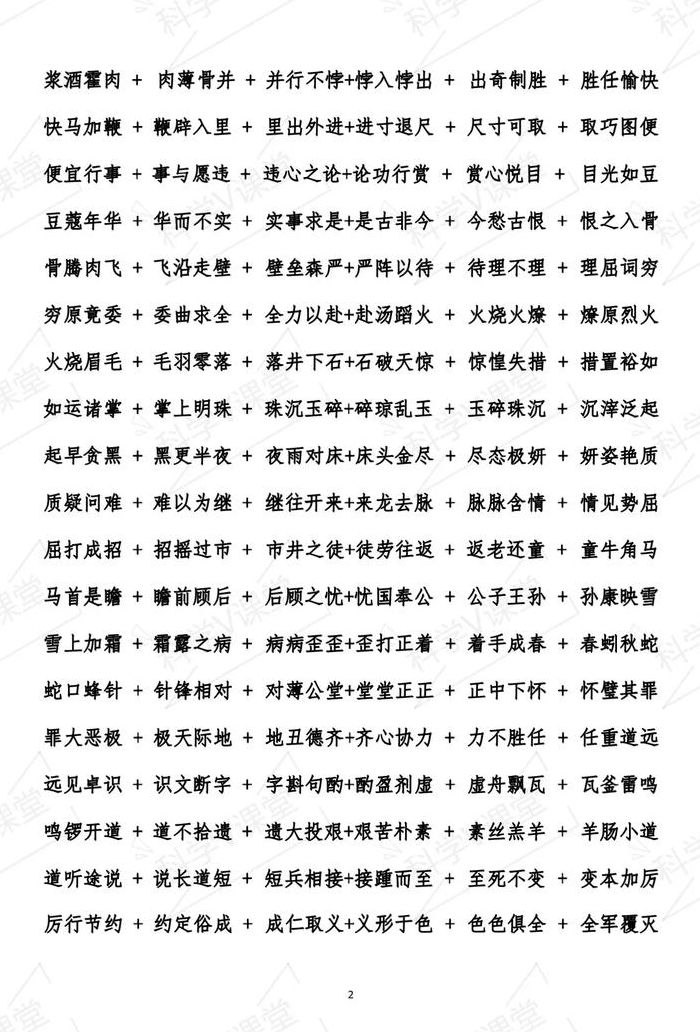 浆酒霍肉 + 肉薄骨并 + 并行不悖+悖入悖出 + 出奇制胜 + 胜任愉快
快马加鞭 + 鞭辟入里 + 里出外进+进寸退尺 + 尺寸可取 + 取巧图便
便宜行事 + 事与愿违 + 违心之论+论功行赏 + 赏心悦目 + 目光如豆
豆蔻年华 + 华而不实 + 实事求是+是古非今 + 今愁古恨 + 恨之入骨
骨腾肉飞 + 飞沿走壁 + 壁垒森严+严阵以待 + 待理不理 + 理屈词穷
穷原竟委 + 委曲求全 + 全力以赴+赴汤蹈火 + 火烧火燎 + 燎原烈火
火烧眉毛 + 毛羽零落 + 落井下石+石破天惊 + 惊惶失措 + 措置裕如
如运诸掌 + 掌上明珠 + 珠沉玉碎+碎琼乱玉 + 玉碎珠沉 + 沉滓泛起
起早贪黑 + 黑更半夜 + 夜雨对床+床头金尽 + 尽态极妍 + 妍姿艳质
质疑问难 + 难以为继 + 继往开来+来龙去脉 + 脉脉含情 + 情见势屈
屈打成招 + 招摇过市 + 市井之徒+徒劳往返 + 返老还童 + 童牛角马
马首是瞻 + 瞻前顾后 + 后顾之忧+忧国奉公 + 公子王孙 + 孙康映雪
雪上加霜 + 霜露之病 + 病病歪歪+歪打正着 + 着手成春 + 春蚓秋蛇
蛇口蜂针 + 针锋相对 + 对薄公堂+堂堂正正 + 正中下怀 + 怀璧其罪
罪大恶极 + 极天际地 + 地丑德齐+齐心协力 + 力不胜任 + 任重道远
远见卓识 + 识文断字 + 字斟句酌+酌盈剂虚 + 虚舟飘瓦 + 瓦釜雷鸣
鸣锣开道 + 道不拾遗 + 遗大投艰+艰苦朴素 + 素丝羔羊 + 羊肠小道
道听途说 + 说长道短 + 短兵相接+接踵而至 + 至死不变 + 变本加厉
厉行节约 + 约定俗成 + 成仁取义+义形于色 + 色色俱全 + 全军覆灭
2